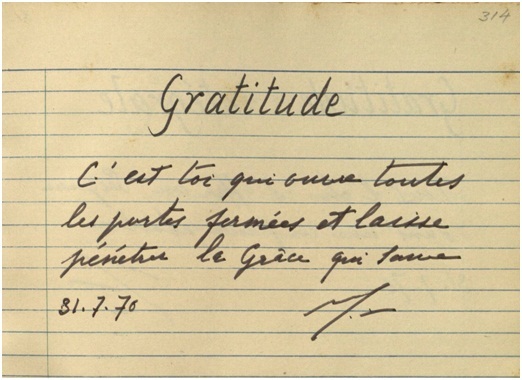 314
Gratitude
C'est toi qui ouvre toutes
les portes fermées et laisse
pénétrer la Grâce qui sauve
31.7.70